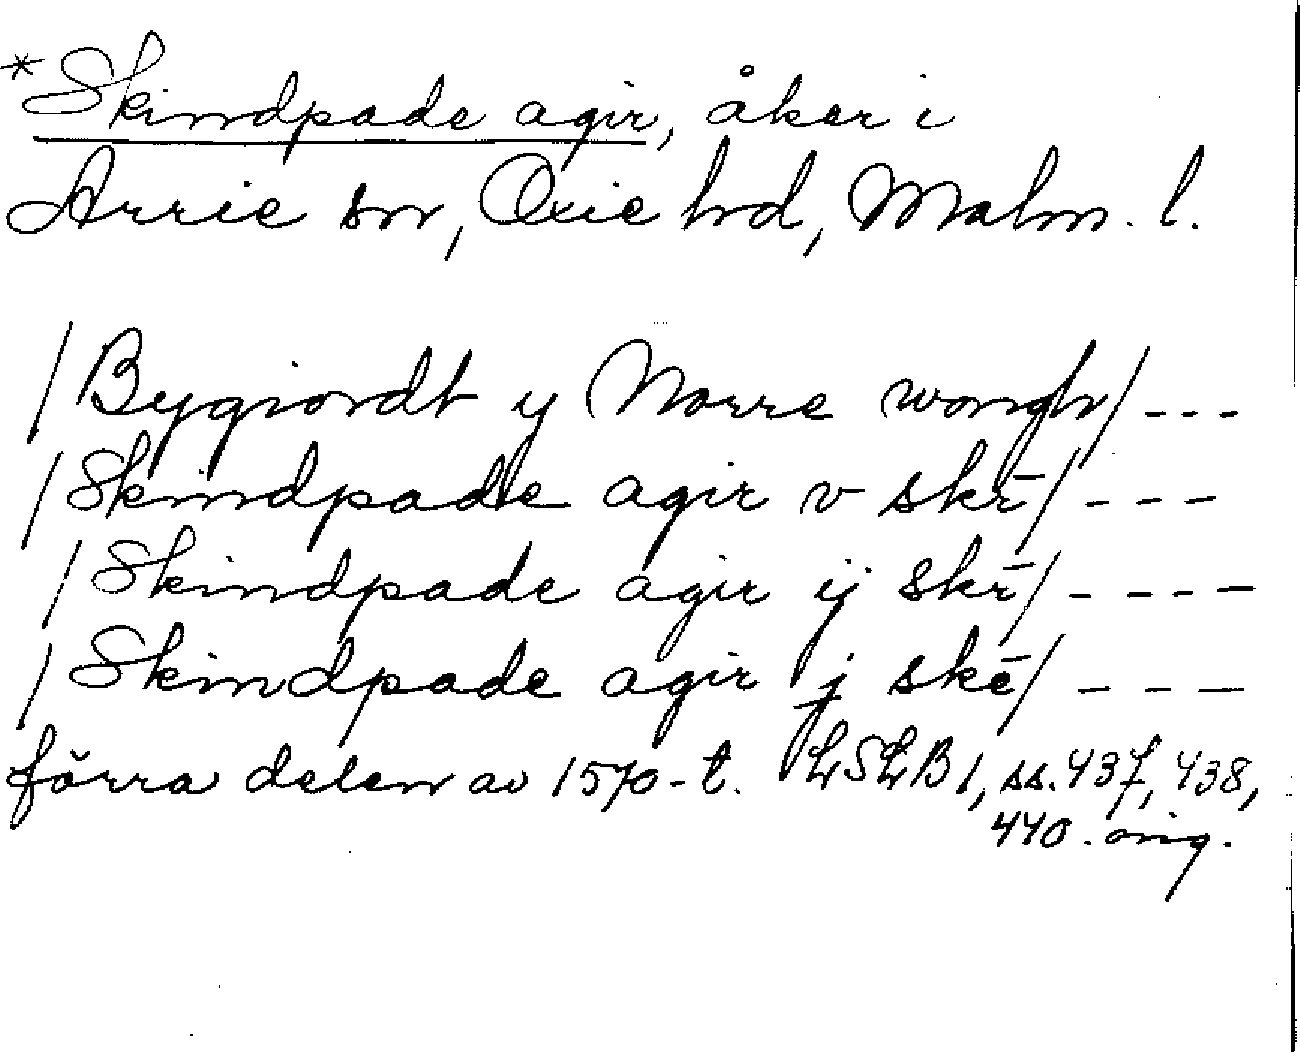 *Skindpade agir, åker i
Arrie sn, Oxie hd, Malm. l.
/Bygiordt y Norre wongh/ ---
/Skindpade agir v skr̄/ ---
/Skindpade agir ij skr̄/ ----
/Skindpade agir j skē/ ---
förra delen av 1570-t. LSLB 1, ss. 437, 438,
440. orig.